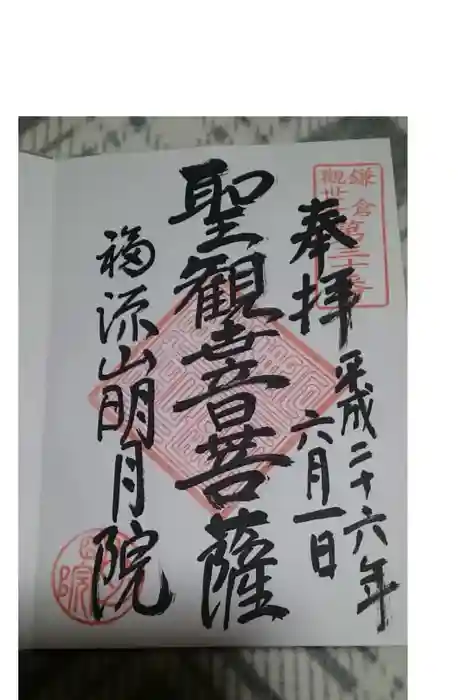 鎌倉
觀世音
第三十番
奉拝
平成二十六年
六月一日
聖観世音菩薩
福源山明月院